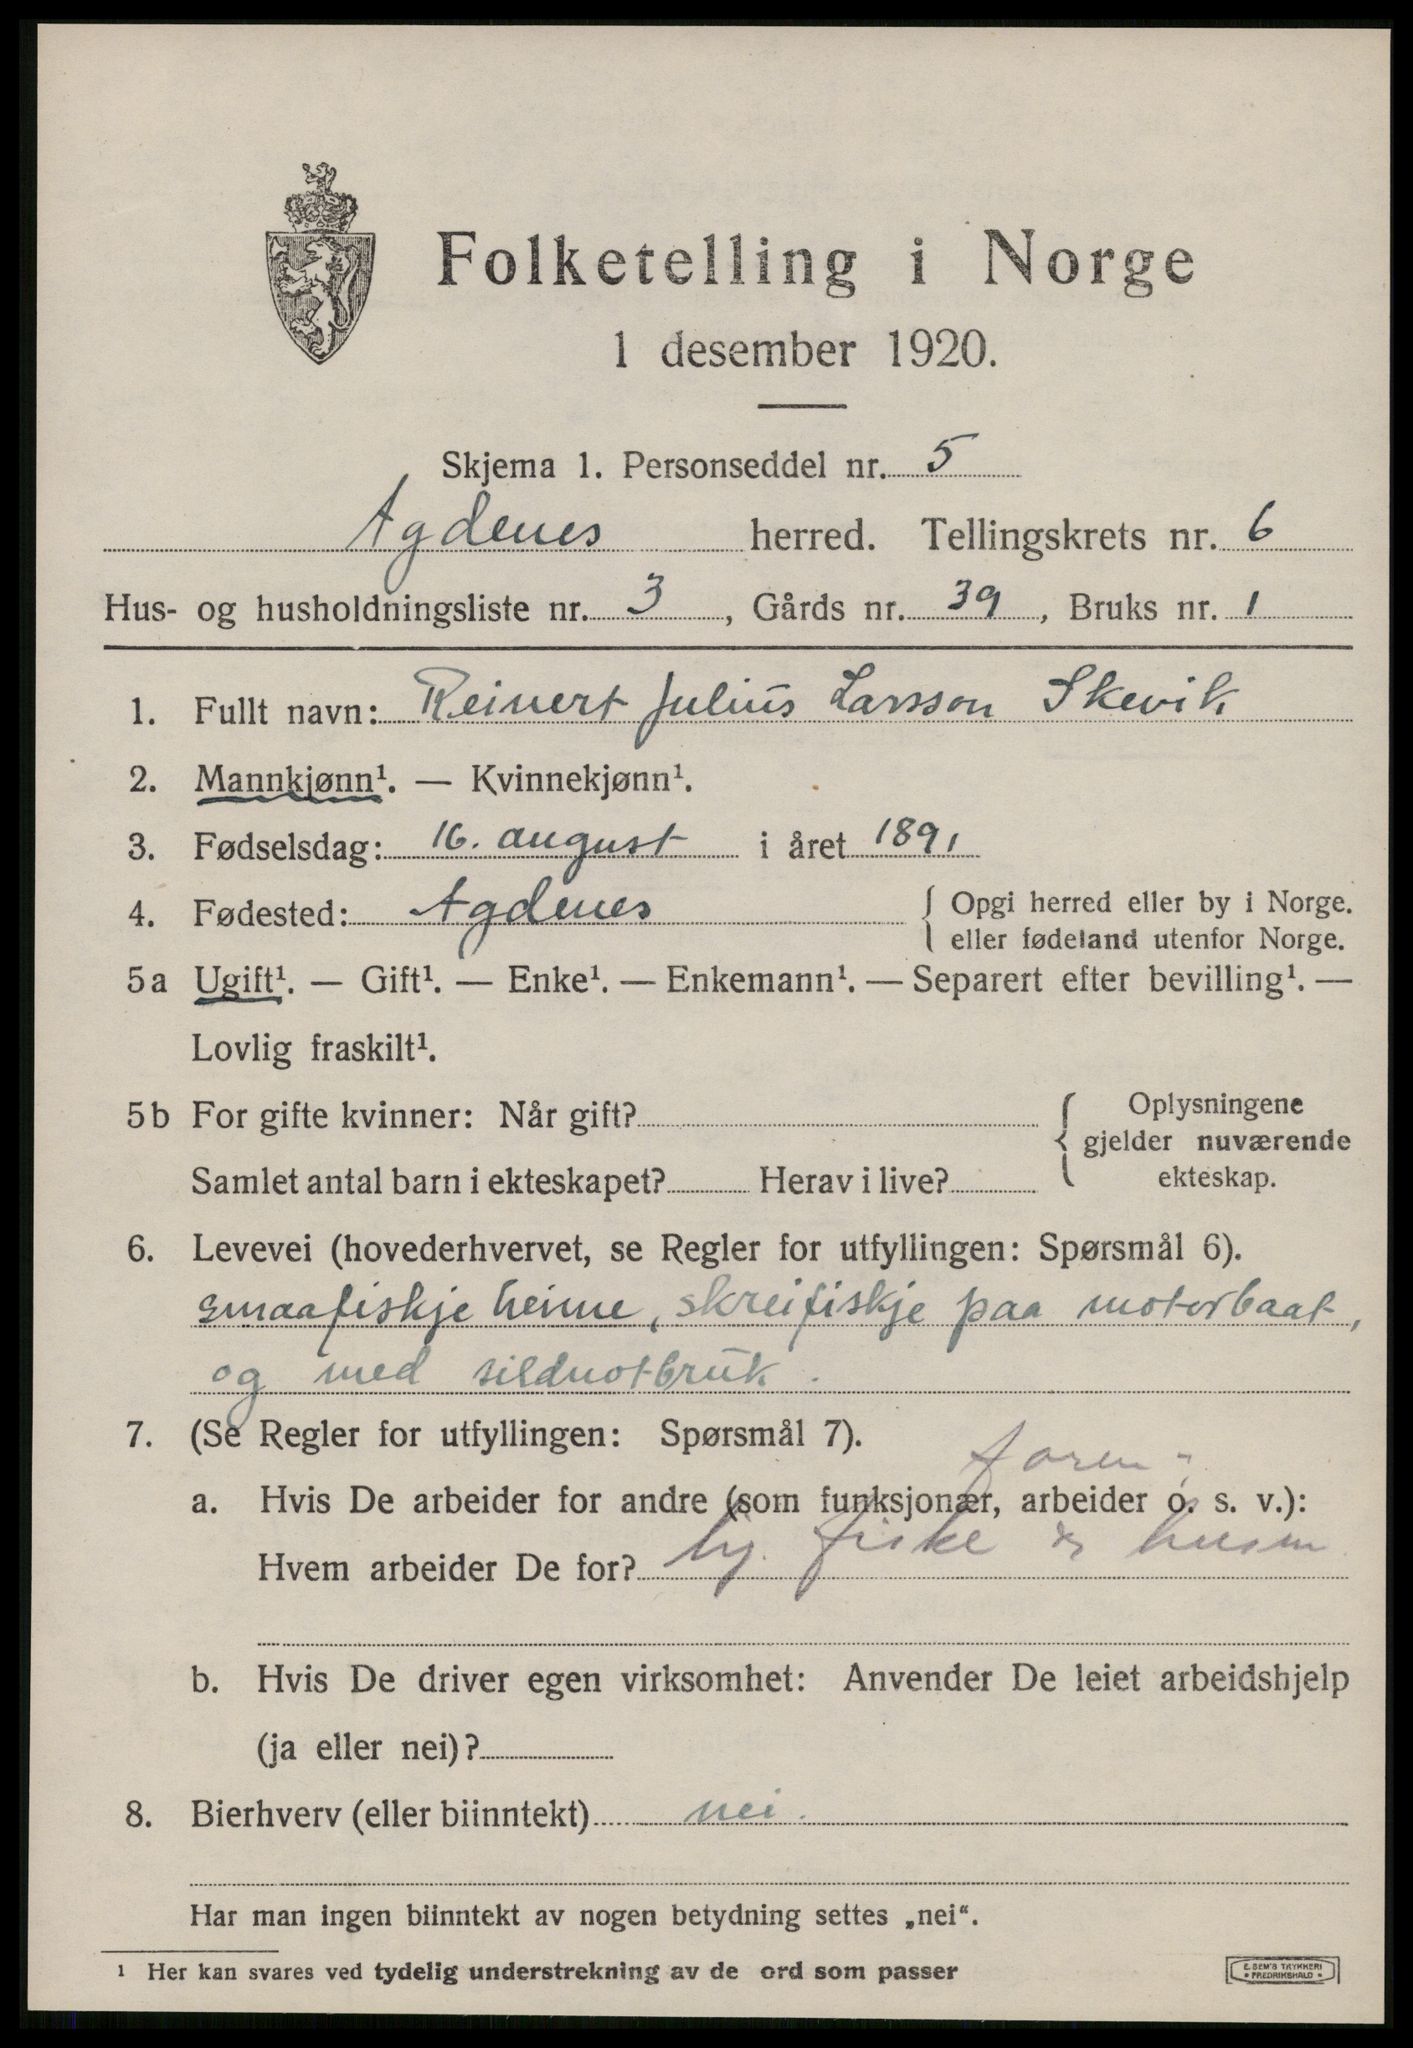 Folketelling i Norge
1 desember 1920.
Skjema 1. Personseddel nr. 5
Agdenes herred. Tellingskrets nr. 6
Hus- og husholdningsliste nr. 3, Gårds nr. 39, Bruks nr. 1
1. Fullt navn: Reinert Julius Larsson Skevik
2. Mannkjønn¹. — Kvinnekjønn¹.
3. Fødselsdag: 16. august i året 1891
4. Fødested: Agdenes { Opgi herred eller by i Norge.
eller fødeland utenfor Norge.
5a Ugift¹. — Gift¹. — Enke¹. — Enkemann¹. — Separert efter bevilling¹. —
Lovlig fraskilt¹.
5b For gifte kvinner: Når gift? { Oplysningene
gjelder nuværende
Samlet antal barn i ekteskapet? Herav i live? ekteskap.
6. Levevei (hovederhvervet, se Regler for utfyllingen: Spørsmål 6).
smaafiskje heime, skreifiskje paa motorbaat,
og med sildnotbruk.
7. (Se Regler for utfyllingen: Spørsmål 7).
faren
a. Hvis De arbeider for andre (som funksjonær, arbeider o. s. v.):
Hvem arbeider De for? fiske
b. Hvis De driver egen virksomhet: Anvender De leiet arbeidshjelp
(ja eller nei)?
8. Bierhverv (eller biinntekt) nei.
Har man ingen biinntekt av nogen betydning settes „nei“.
¹ Her kan svares ved tydelig understrekning av de ord som passer
E. SEM'S TRYKKERI
* FREDRIKSHALD *